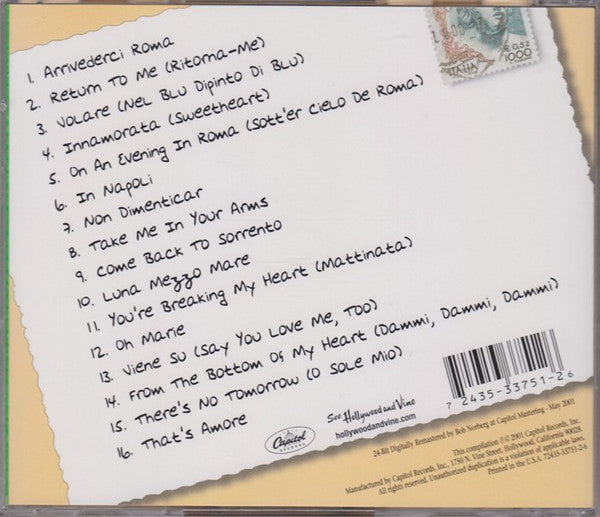 ITALIA
€ 0,52
1000
1. Arrivederci Roma
2. Return To Me (Ritorna-Me)
3. Volare (Nel Blu Dipinto Di Blu)
4. Innamorata (Sweetheart)
5. On An Evening In Roma (Sott'er Cielo De Roma)
6. In Napoli
7. Non Dimenticar
8. Take Me In Your Arms
9. Come Back To Sorrento
10. Luna Mezzo Mare
11. You're Breaking My Heart (Mattinata)
12. Oh Marie
13. Viene Su (Say You Love Me, Too)
14. From The Bottom Of My Heart (Dammi, Dammi, Dammi)
15. There's No Tomorrow (O Sole Mio)
16. That's Amore
Capitol
RECORDS
See Hollywood and Vine
hollywoodandvine.com
7 2435-33751-2 6
24-Bit Digitally Remastered by Bob Norberg at Capitol Mastering - May 2001
This compilation ℗© 2001 Capitol Records, Inc.
Manufactured by Capitol Records, Inc., 1750 N. Vine Street, Hollywood, California 90028.
All rights reserved. Unauthorized duplication is a violation of applicable laws.
Printed in the U.S.A. 72435-33751-2-6